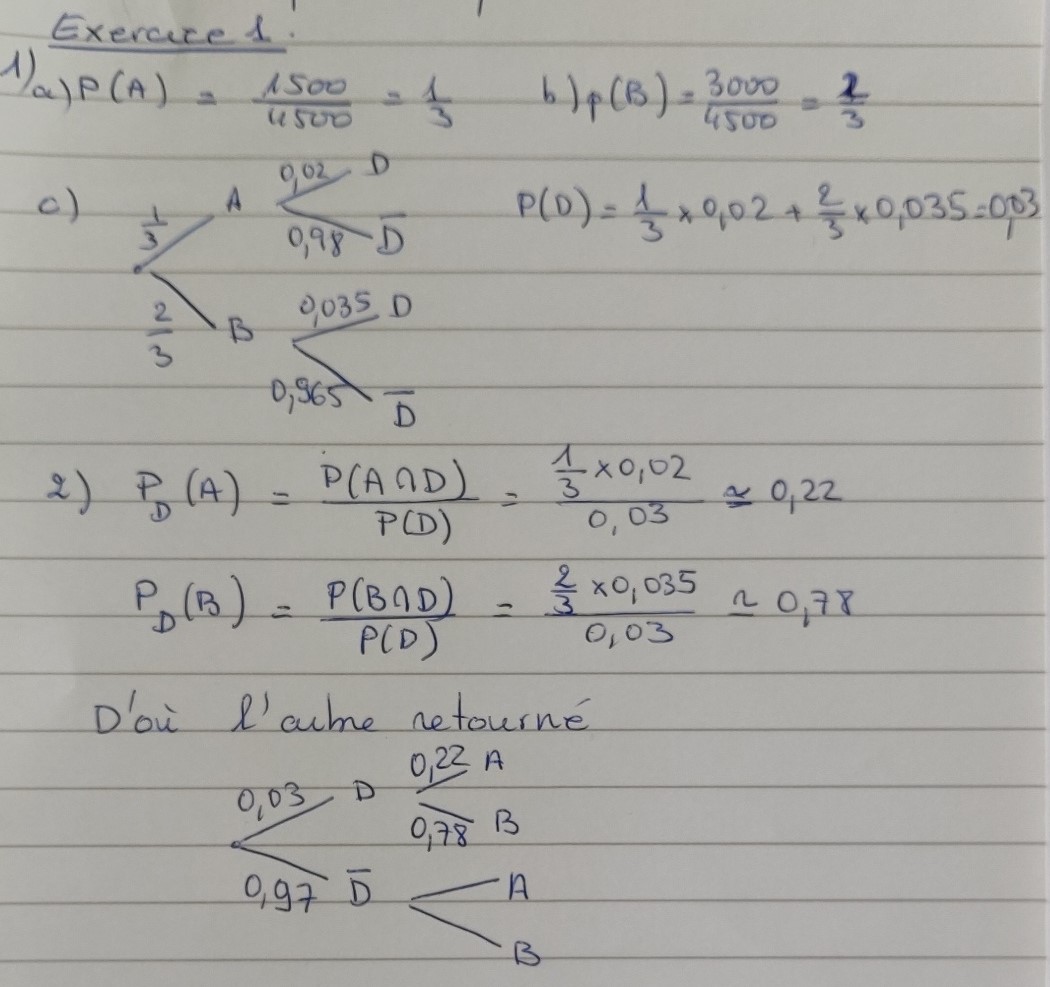 Exercice 1.
1) a) P(A) = 1500/4500 = 1/3 b) p(B) = 3000/4500 = 2/3
c) 1/3 A 0,02 D 0,98 D̅ P(D) = 1/3 × 0,02 + 2/3 × 0,035 = 0,03
2/3 B 0,035 D 0,965 D̅
2) P_D(A) = P(A∩D)/P(D) = (1/3 × 0,02)/0,03 ≃ 0,22
P_D(B) = P(B∩D)/P(D) = (2/3 × 0,035)/0,03 ≃ 0,78
D'où l'arbre retourné
0,03 D 0,22 A
0,78 B
0,97 D̅ A
B